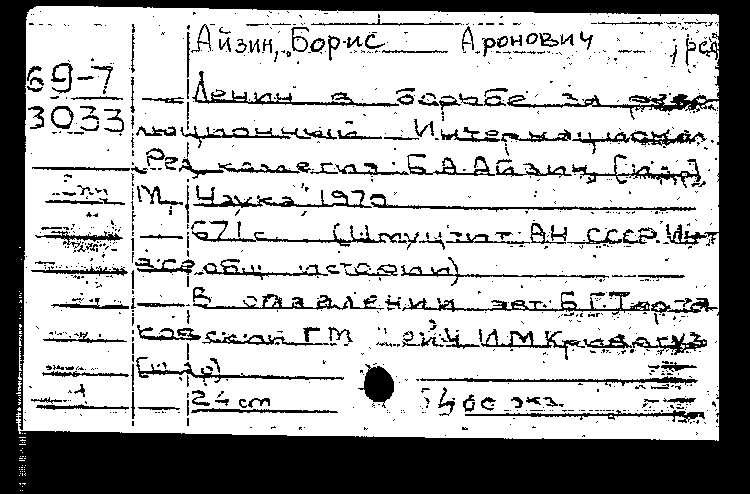 Айзин, Борис Аронович , ред
69-7
Ленин в борьбе за рево
3033
люционный Интернационал
Ред коллегия: Б.А.Айзин, [и др]
М, "Наука", 1970
671 с (Шмуцтит АН СССР. Инт
всеобщ истории)
В оглавлении авт: Б.Г.Тарта
ковский ГМ ИМ Кривогуз
[и др]
24 cm 5400 экз.